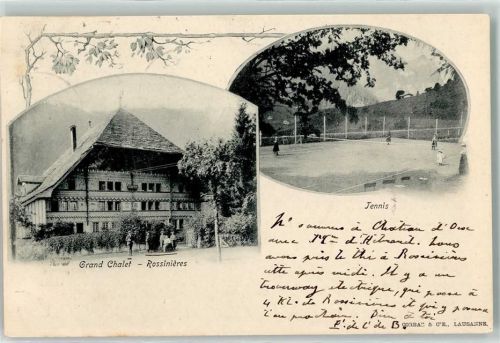 Tennis
Grand Chalet - Rossinières
Nous sommes à Château d'Oex
avec Mme d'Hérard. Nous
avons pris le thé à Rossinières
cette après midi. Il y a un
tramway électrique, qui passe à
4 Kl. de Rossinières et qui y passera
l'an prochain. Bien à toi
& CIE., LAUSANNE.